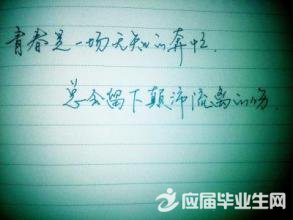 青春是一场无知的奔忙.
总会留下颠沛流离的伤.
应届毕业生网